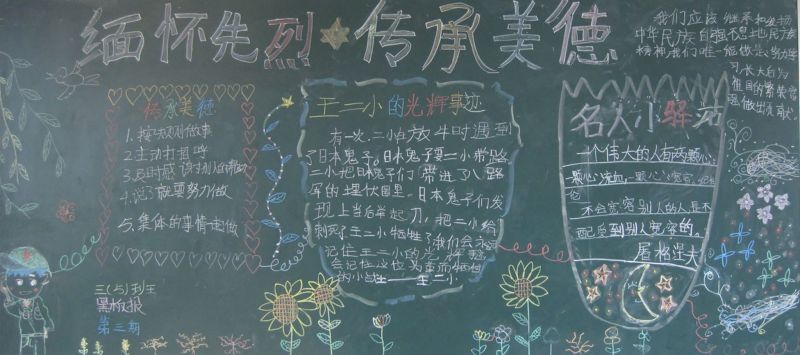 缅怀先烈★传承美德
我们应该继承和发扬
中华民族自强不息地民族
精神我们唯一能做
习长大后为
祖国的繁荣富
强做出贡献
传承美德
1. 按规则做事
2. 主动打招呼
3. 及时感谢别人的帮助
4. 说了就要努力做
5. 集体的事情一起做
三(5)班
黑板报
第三期
王二小的光辉事迹
有一次,二小在放牛时遇到
了日本鬼子。日本鬼子要二小带路
二小把日本鬼子们带进了八路
军的埋伏圈里,日本鬼子们发
现上当后举起刀,把二小给
刺死了王二小牺牲了我们会永远
记住王二小的
会记住这位为革命牺牲
的小战士——王二小
名人小驿站
一个伟大的人有两颗心:
一颗心流血,一颗心宽容。纪伯
伦
不会宽容别人的人是不
配受到别人宽容的。
屠格涅夫